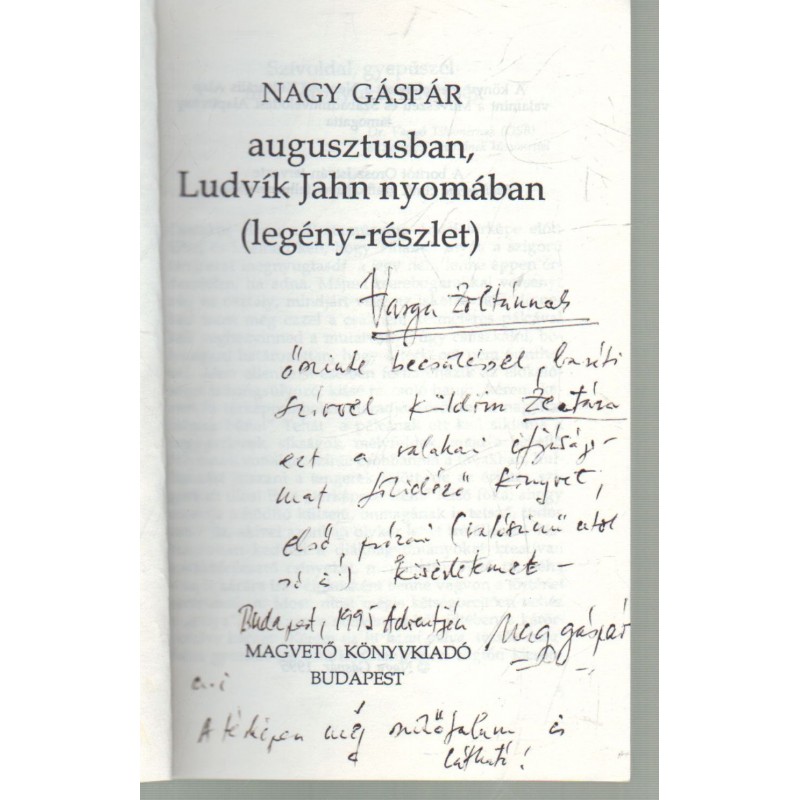 NAGY GÁSPÁR
augusztusban,
Ludvík Jahn nyomában
(legény-részlet)
Varga Zoltánnak
őszinte becsüléssel, baráti
szívvel küldöm Zentára
ezt a valahai ifjúság-
mat fölidéző könyvet,
első prózai (valószínű utol
só is!) kísérletemet –
Budapest, 1995 Adventjén
Nagy Gáspár
MAGVETŐ KÖNYVKIADÓ
BUDAPEST
A térképen még szülőfalum is
látható!